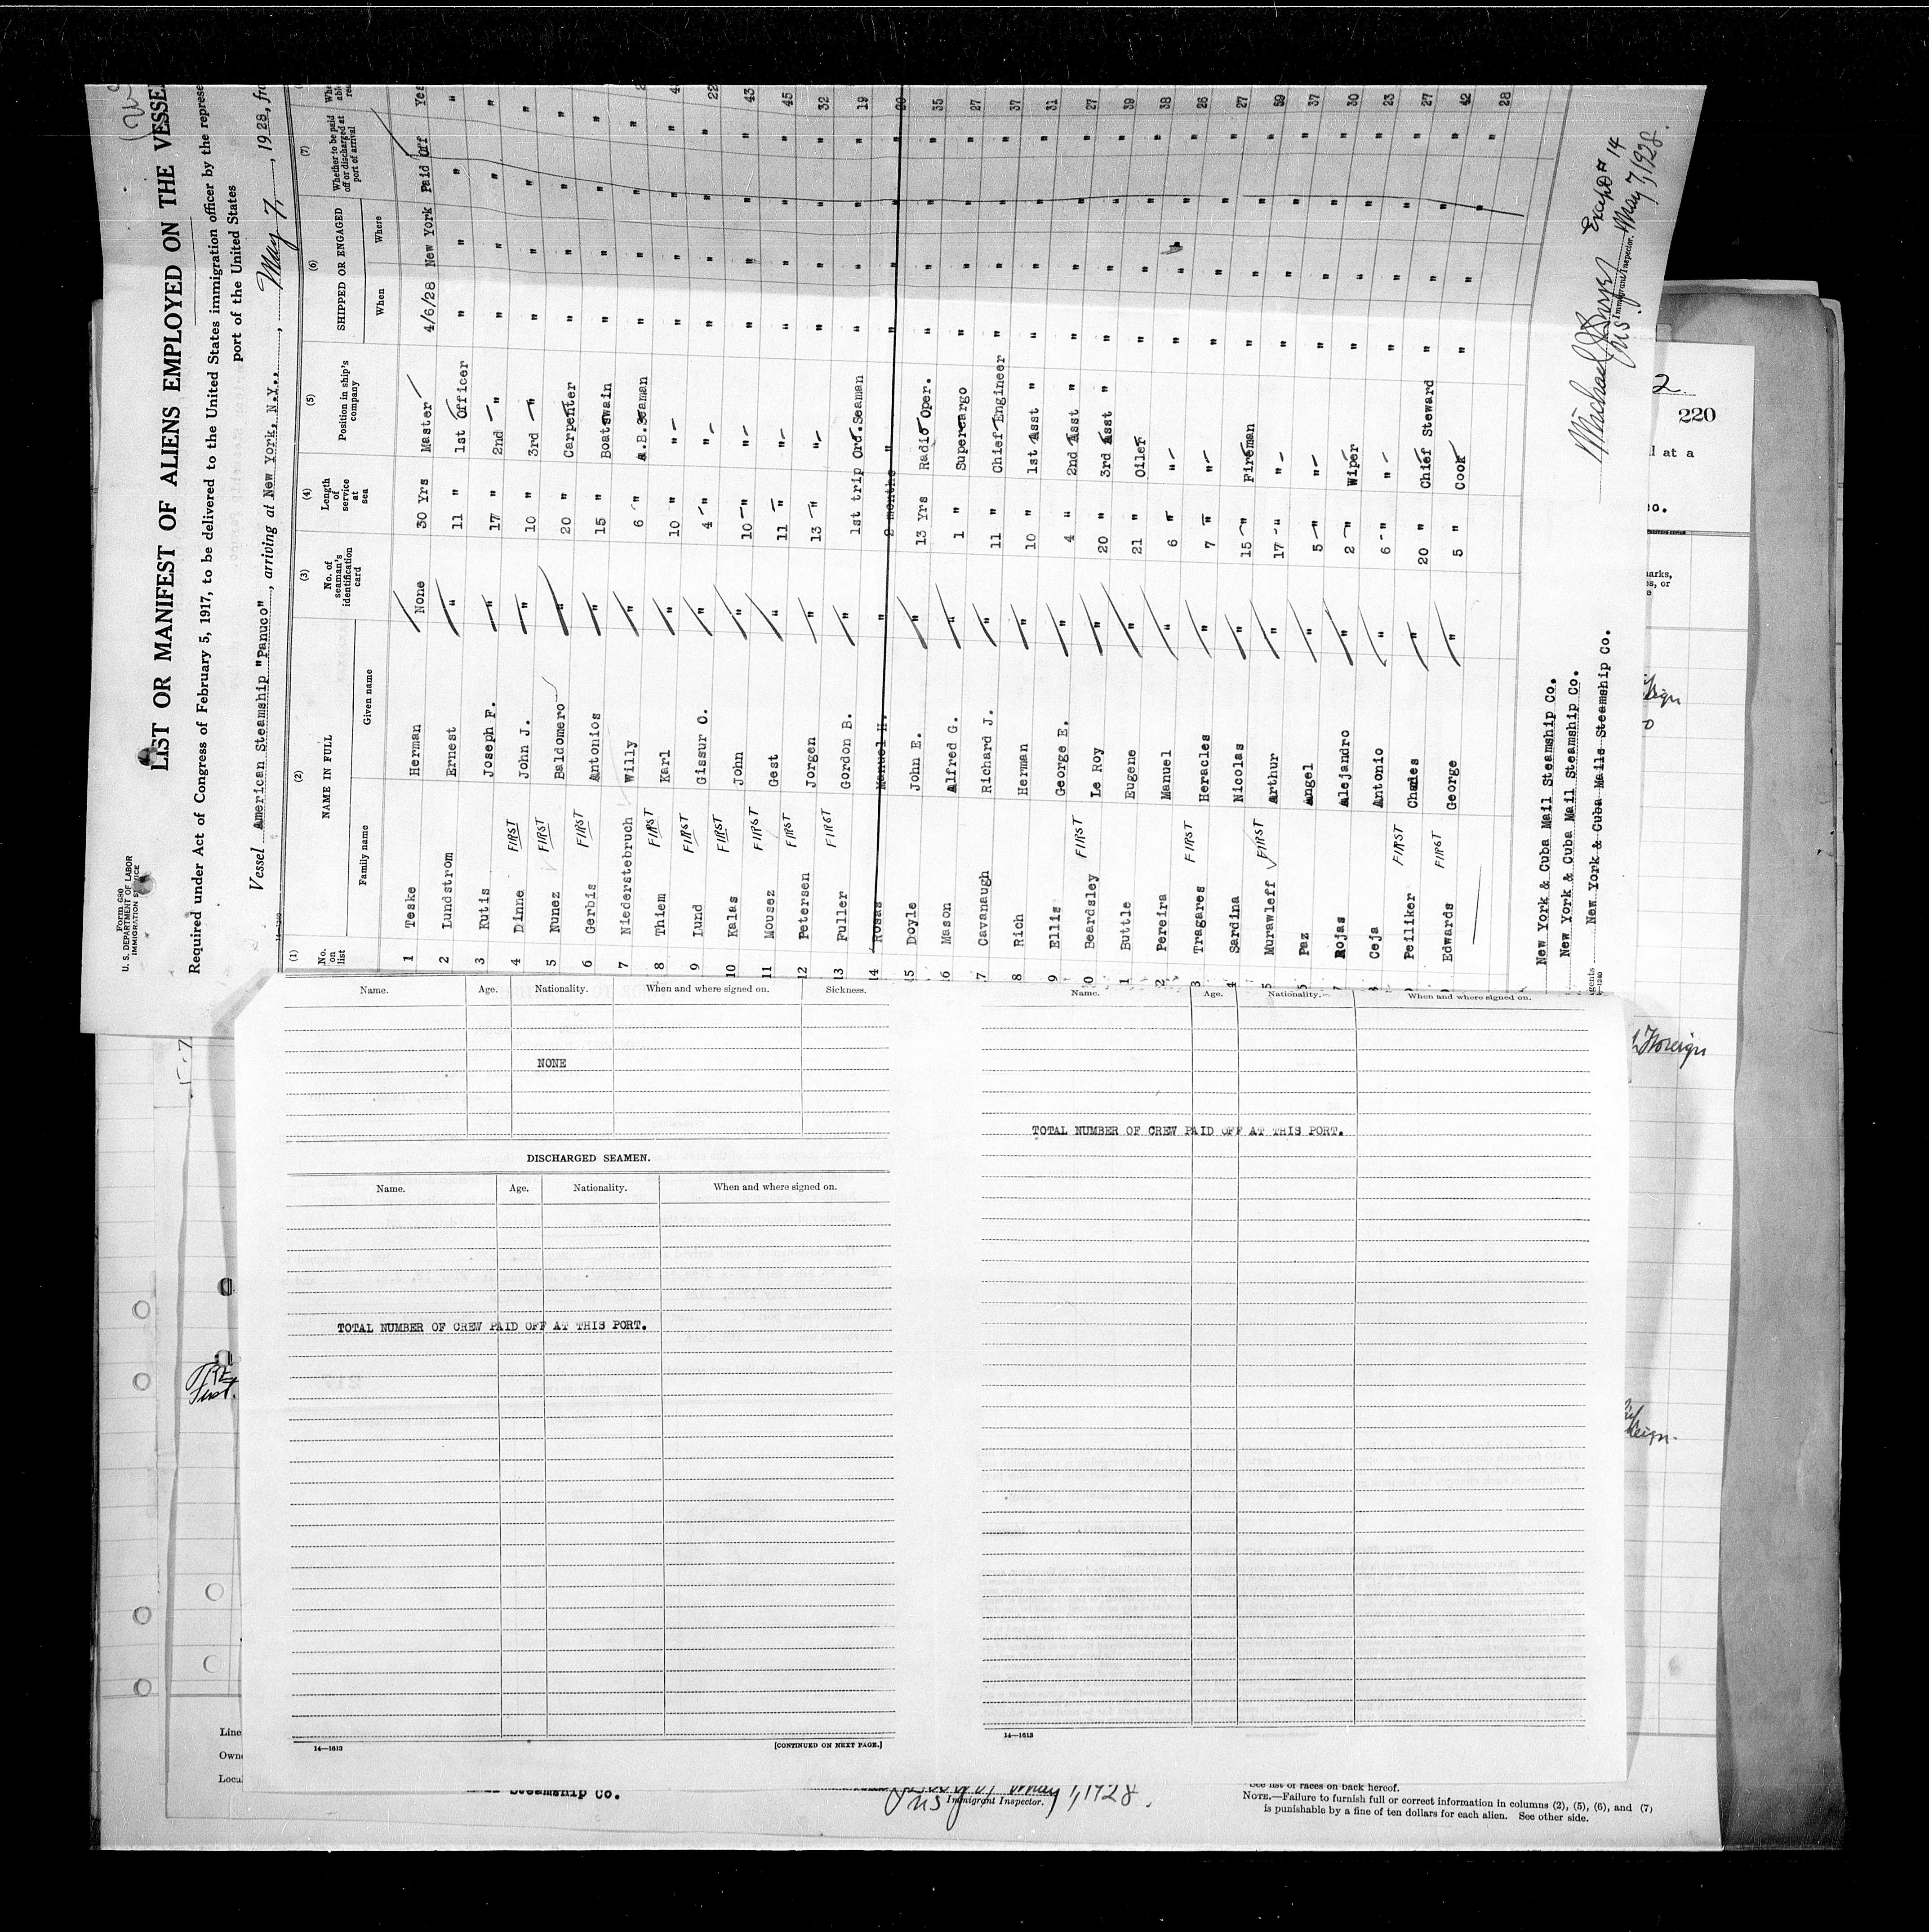 Form 680
U. S. DEPARTMENT OF LABOR
IMMIGRATION SERVICE
LIST OR MANIFEST OF ALIENS EMPLOYED ON THE VESSE
Required under Act of Congress of February 5, 1917, to be delivered to the United States immigration officer by the represe
port of the United States
Vessel American Steamship "Panuco", arriving at New York, N.Y., May 7, 1928, fro
(1) (2) (3) (4) (5) (6) (7)
No. on list NAME IN FULL No. of seaman's identification card Length of service at sea Position in ship's company SHIPPED OR ENGAGED Whether to be paid off or discharged at port of arrival
Family name Given name When Where
1 Teske Herman None 30 Yrs Master 4/6/28 New York Paid Off Yes
2 Lundstrom Ernest " 11 " 1st Officer " " " "
3 Kutis Joseph F. " 17 " 2nd " " " " "
4 Dinne FIRST John J. " 10 " 3rd " " " " "
5 Nunez FIRST Baldomero " 20 " Carpenter " " " "
6 Gerbis FIRST Antonios " 15 " Boatswain " " " "
7 Niederstebruch Willy " 6 " A.B.Seaman " " " "
8 Thiem FIRST Karl " 10 " " " " " "
9 Lund FIRST Gissur O. " 4 " " " " " " 22
10 Kalas FIRST John " 10 " " " " " " 43
11 Mousez FIRST Gest " 11 " " " " " " 45
12 Petersen FIRST Jorgen " 13 " " " " " " 32
13 Fuller FIRST Gordon B. " 1st trip Ord.Seaman " " " " 19
14 Rosas Manuel H. " 2 months " " " " " 20
15 Doyle John E. " 13 Yrs Radio Oper. " " " " 35
16 Mason Alfred G. " 1 " Supercargo " " " " 27
17 Cavanaugh Richard J. " 11 " Chief Engineer " " " " 37
8 Rich Herman " 10 " 1st Asst " " " " " 31
9 Ellis George E. " 4 " 2nd Asst " " " " " 27
0 Beardsley FIRST Le Roy " 20 " 3rd Asst " " " " " 39
1 Buttle Eugene " 21 " Oiler " " " " 38
2 Pereira Manuel " 6 " " " " " " 26
3 Tragares FIRST Heracles " 7 " " " " " " 27
4 Sardina Nicolas " 15 " Fireman " " " " 59
5 Murawleff FIRST Arthur " 17 " " " " " " 37
Paz Angel " 5 " " " " " " 30
Rojas Alejandro " 2 " Wiper " " " " 23
Ceja Antonio " 6 " " " " " " 27
Peiliker FIRST Charles " 20 " Chief Steward " " " " 42
Edwards FIRST George " 5 " Cook " " " " 28
New York & Cuba Mail Steamship Co.
New York & Cuba Mail Steamship Co.
New York & Cuba Mails Steamship Co.
Except # 14
Immigrant Inspector. May 7, 1928.
2
220
l at a
Foreign
Name. Age. Nationality. When and where signed on. Sickness.
NONE
DISCHARGED SEAMEN.
Name. Age. Nationality. When and where signed on.
TOTAL NUMBER OF CREW PAID OFF AT THIS PORT.
14—1613 [CONTINUED ON NEXT PAGE.]
Name. Age. Nationality. When and where signed on.
TOTAL NUMBER OF CREW PAID OFF AT THIS PORT.
14—1613
First.
Line
Owne
Loca
Steamship Co.
Immigrant Inspector.
See list of races on back hereof.
NOTE.—Failure to furnish full or correct information in columns (2), (5), (6), and (7)
is punishable by a fine of ten dollars for each alien. See other side.